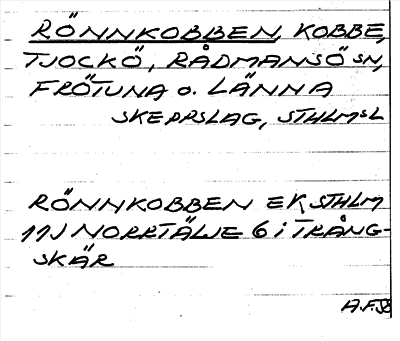 RÖNNKOBBEN KOBBE,
TJOCKÖ, RÅDMANSÖ SN,
FRÖTUNA O. LÄNNA
SKEPPSLAG, STHLMSL
RÖNNKOBBEN EK STHLM
11J NORRTÄLJE 6 i TRÅNG-
SKÄR
A.F.